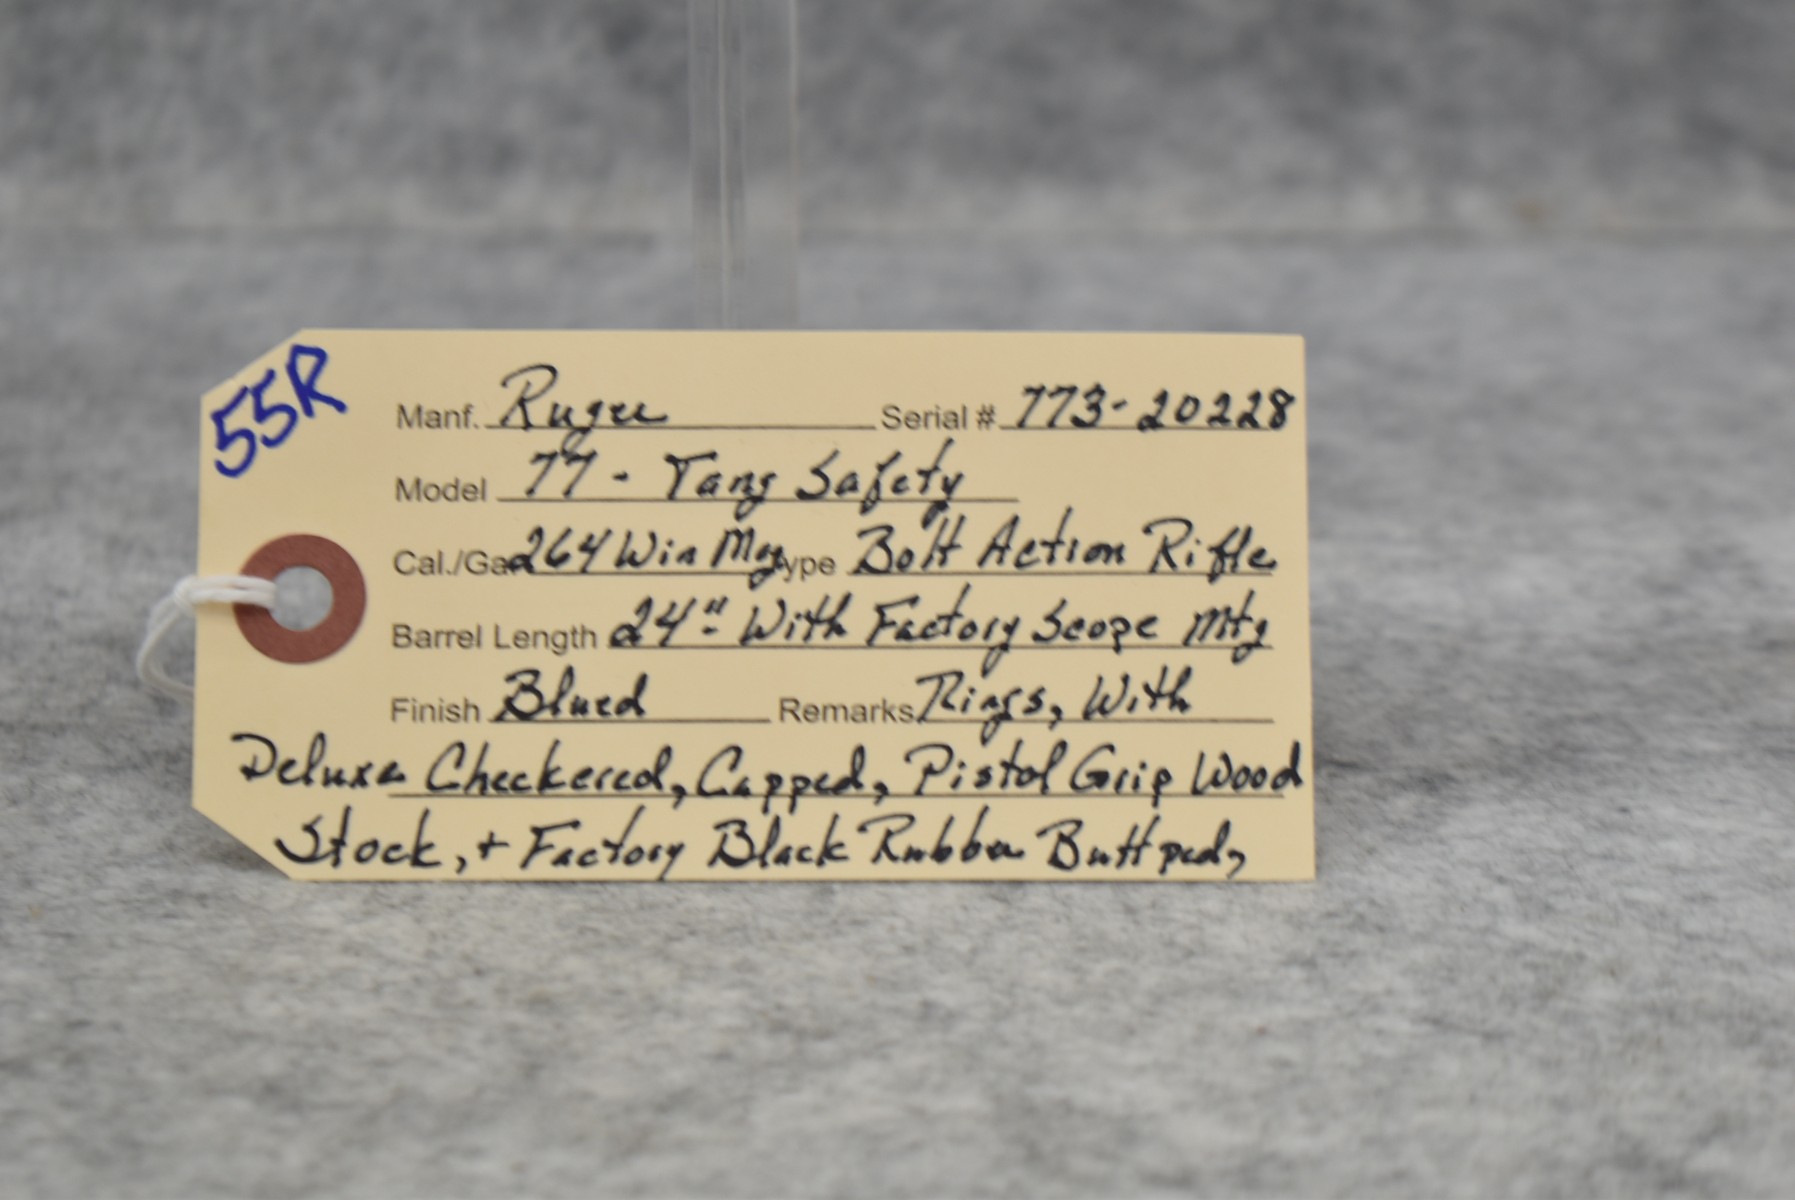 55R
Manf. Ruger Serial # 773-20228
Model 77 - Tang Safety
Cal./Ga. 264 Win Mag Type Bolt Action Rifle
Barrel Length 24" With Factory Scope Mtg
Finish Blued Remarks Rings, With
Deluxe Checkered, Capped, Pistol Grip Wood
Stock, + Factory Black Rubber Buttpad,